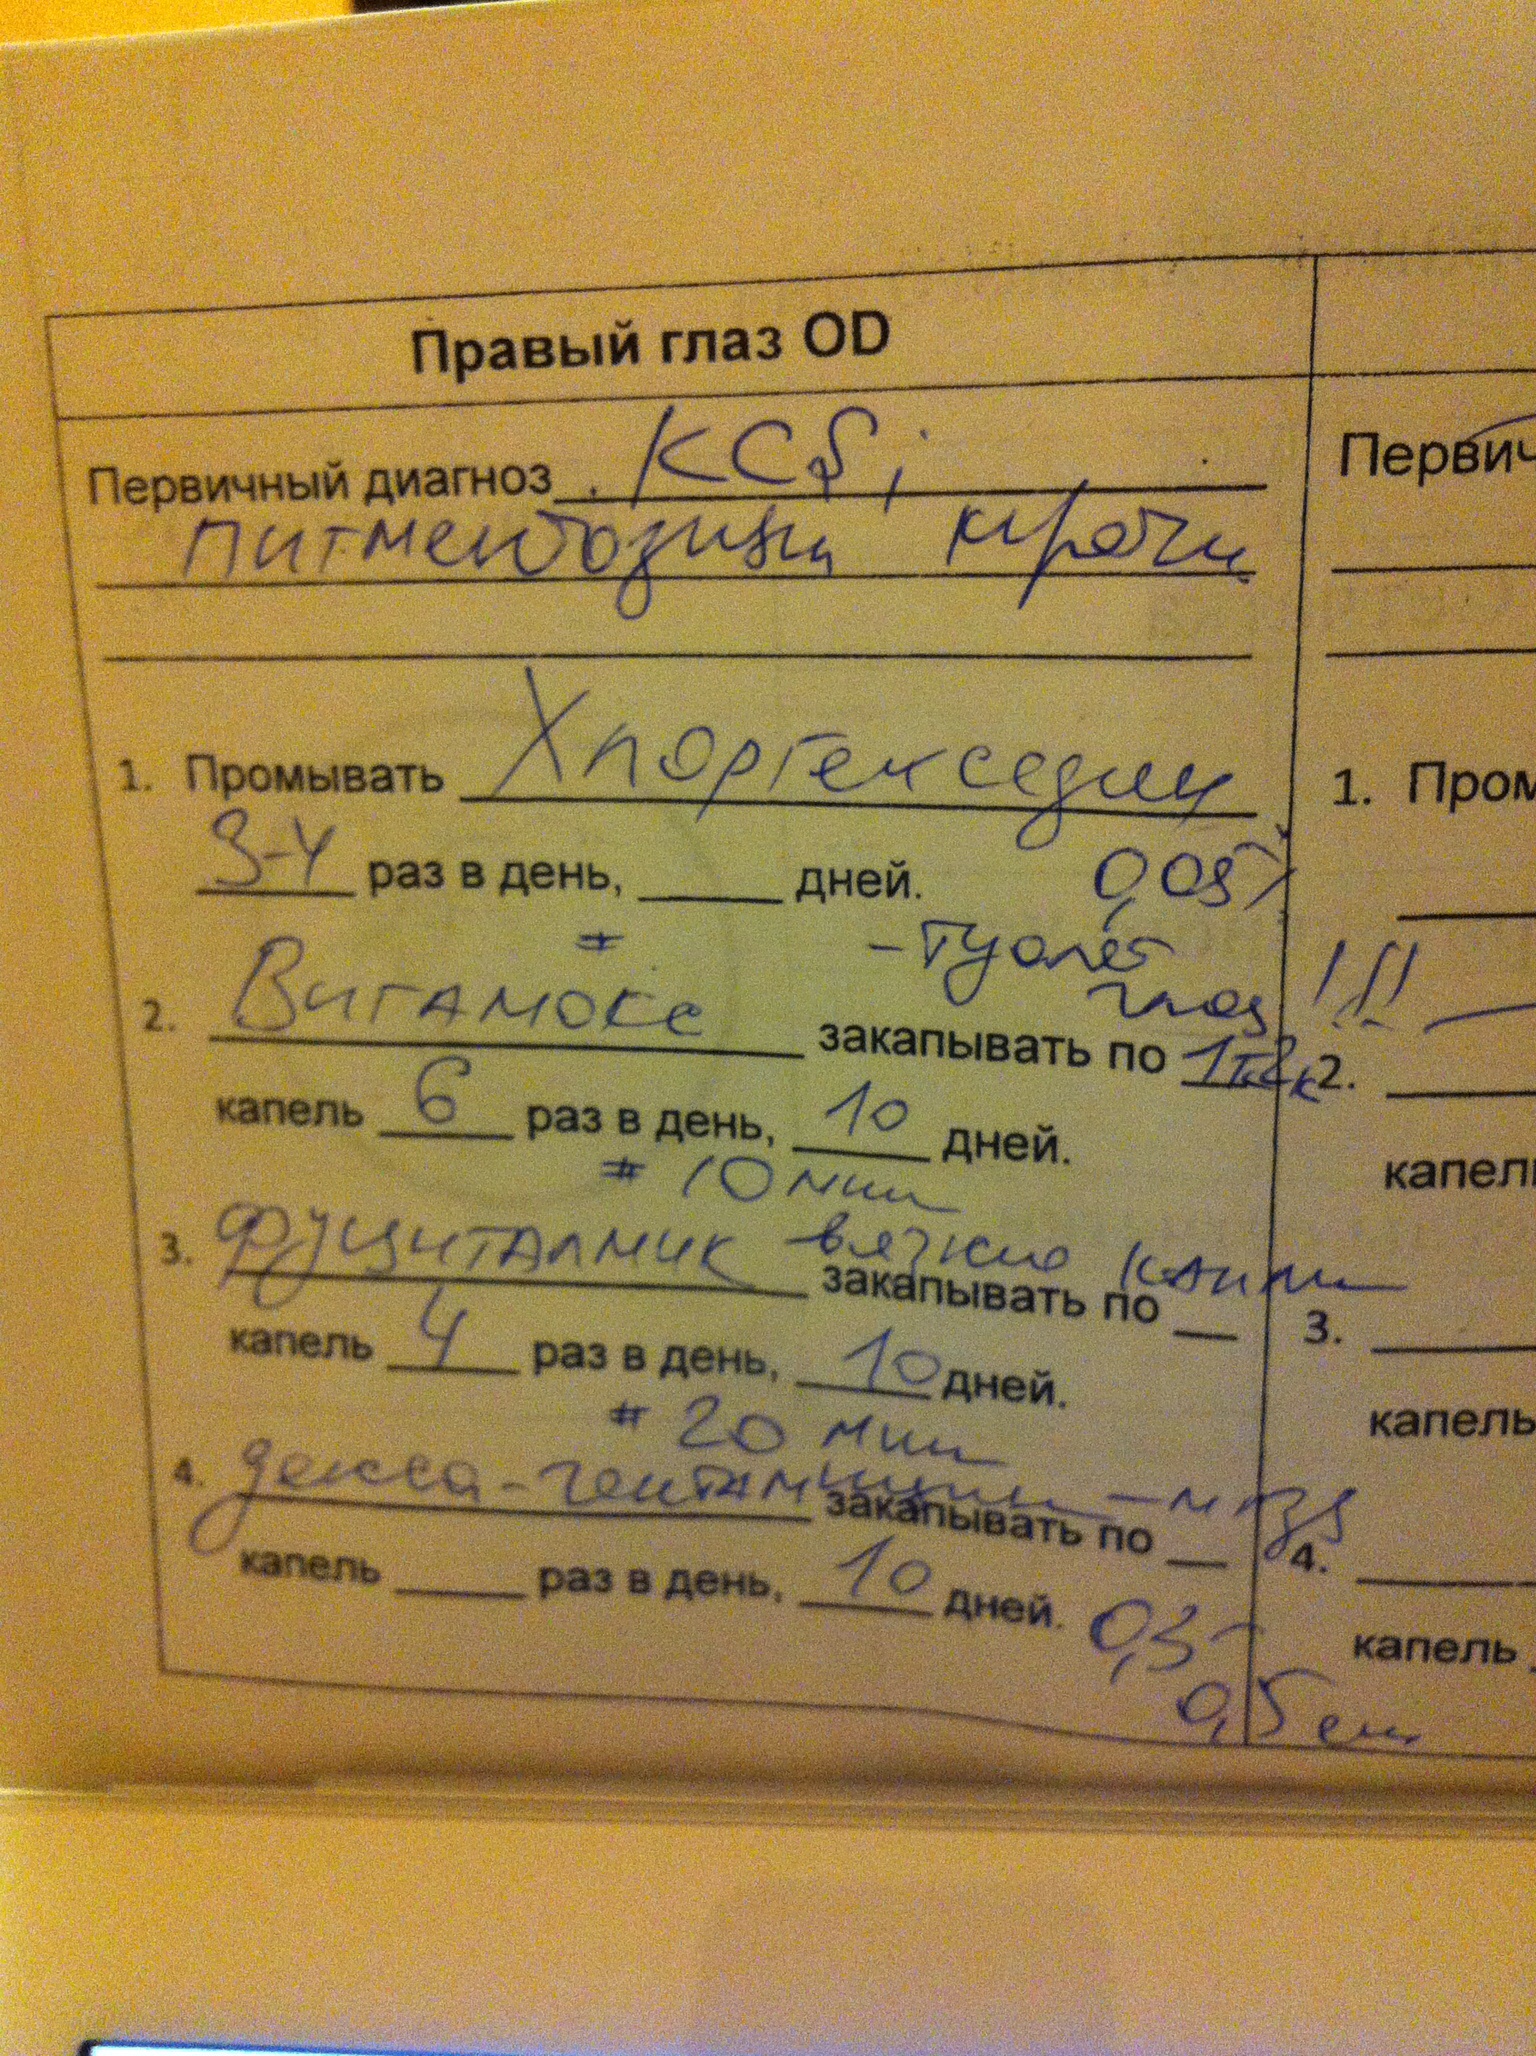 Правый глаз OD
Первичный диагноз KCS;
Первич
1. Промывать Хлоргекседин
1. Пром
3-4 раз в день, ____ дней. 0,05%
≠ - туалет
глаз !!!
2. Вигамокс закапывать по 1
2.
капель 6 раз в день, 10 дней.
капел
≠ 10 мин
3. Фуциталмик вязкие капли
закапывать по __
3.
капель 4 раз в день, 10 дней.
капель
≠ 20 мин
4. декса-гентамицин - мазь
закапывать по __
4.
капель ____ раз в день, 10 дней. 0,3-
капель
0,5 см